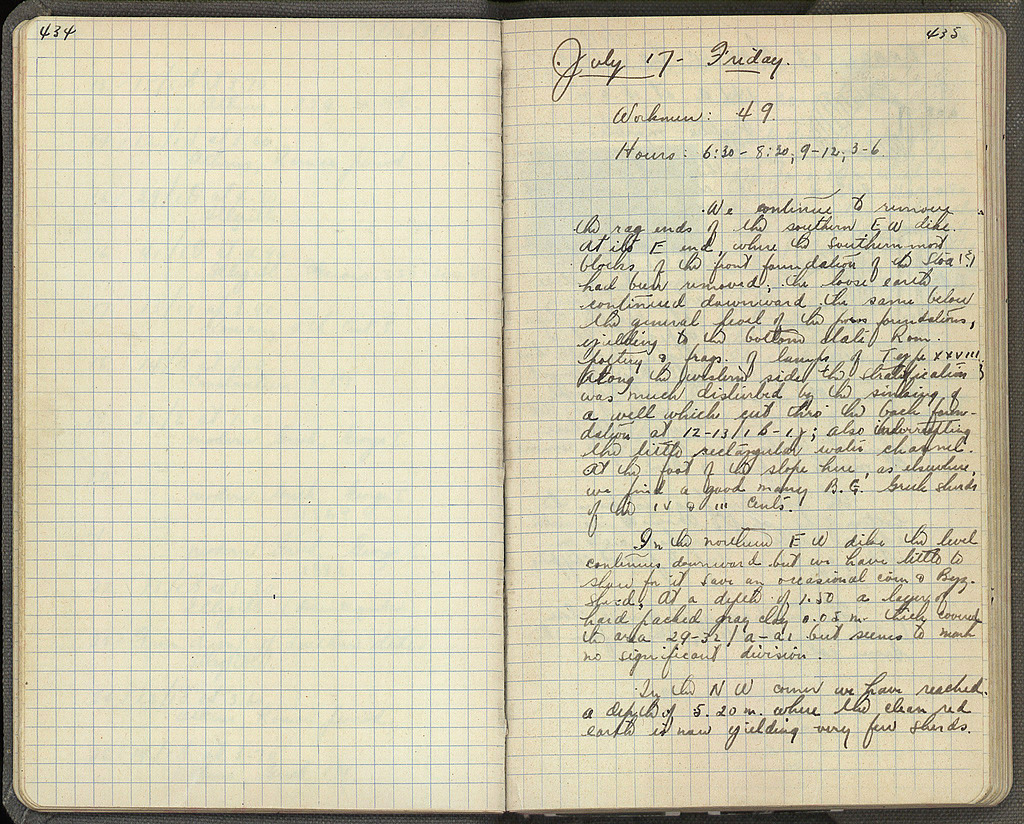 434
435
July 17 - Friday.
Workmen: 49.
Hours: 6:30 - 8:30; 9-12; 3-6.
We continue to remove
the rag ends of the southern E W dike.
At its E end, where the southernmost
blocks of the front foundation of the Stoa (?)
had been removed, the loose earth
continued downward the same below
the general level of the foundations,
yielding to the bottom Late Rom.
pottery & frags. of lamps of Type XXVIII.
Along the western side the stratification
was much disturbed by the sinking of
a well which cut thro' the back foun-
dation at 12-13/ ; also interrupting
the little rectangular water channel.
At the foot of the slope here, as elsewhere,
we find a good many B.G. Greek sherds
of the IV & III Cents.
In the northern E W dike the level
continues downward but we have little to
show for it save an occasional coin & Byz.
sherd. At a depth of 1.50 a layer of
hard packed gray clay 0.05 m. thick covered
the area 29-32/ but seems to mark
no significant division.
In the N W corner we have reached
a depth of 5.20 m. where the clean red
earth is now yielding very few sherds.